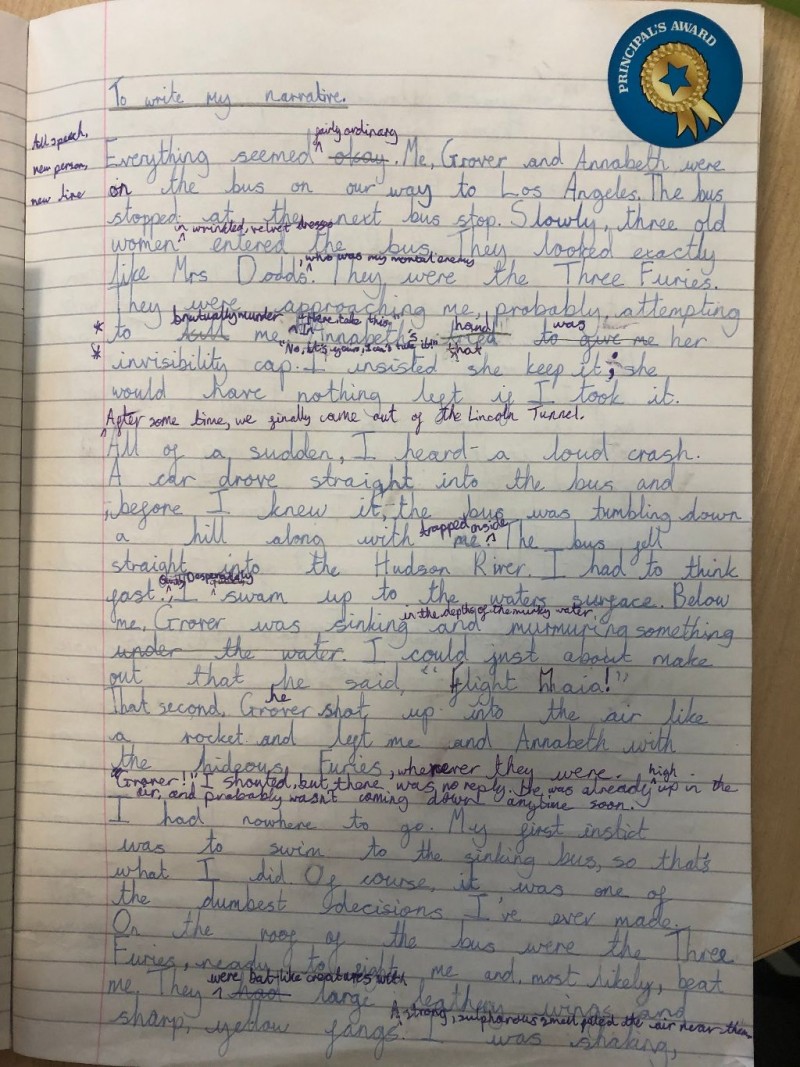 PRINCIPAL'S AWARD
To write my narrative.
All speech,
new person,
new line
fairly ordinary
Everything seemed okay. Me, Grover and Annabeth were
on the bus on our way to Los Angeles. The bus
stopped at the next bus stop. Slowly, three old
in wrinkled, velvet dresses
women entered the bus. They looked exactly
, who was my mortal enemy
like Mrs Dodds. They were the Three Furies.
They were approaching me, probably, attempting
brutually murder "Here, take this," hand was
* to kill me. In Annabeth's to give me her
"No, it's yours, I can't take it!" that
* invisibility cap. I insisted she keep it; she
would have nothing left if I took it.
After some time, we finally came out of the Lincoln Tunnel.
All of a sudden, I heard a loud crash.
A car drove straight into the bus and
, before I knew it, the bus was tumbling down
trapped inside
a hill along with me. The bus fell
straight into the Hudson River. I had to think
Desperately
fast. I swam up to the waters surface. Below
in the depths of the murky water.
me, Grover was sinking and murmuring something
under the water. I could just about make
out that he said, "flight Maia!"
he
That second, Grover shot up into the air like
a rocket and left me and Annabeth with
the hideous Furies, wherever they were.
"Grover!" I shouted, but there was no reply. He was already high up in the
air, and probably wasn't coming down anytime soon.
I had nowhere to go. My first instict
was to swim to the sinking bus, so that's
what I did. Of course, it was one of
the dumbest decisions I've ever made.
On the roof of the bus were the Three
Furies, ready to fight me and, most likely, beat
were bat-like creatures with
me. They had large leathery wings and
A strong, sulpharous smell filled the air near them
sharp, yellow fangs. I was shaking,